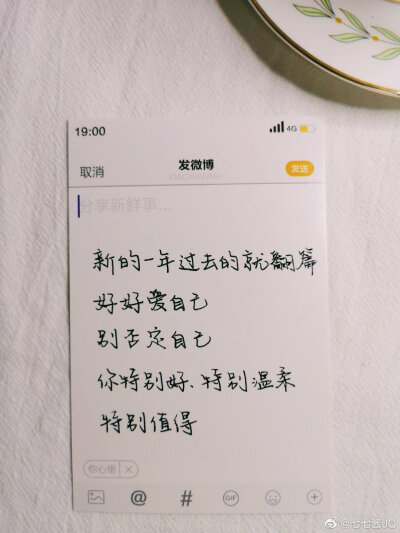 19:00
4G
取消
发微博
发送
分享新鲜事...
新的一年过去的就翻篇
好好爱自己
别否定自己
你特别好、特别温柔
特别值得
你心里 ×
@ # GIF
@七七酱JQ